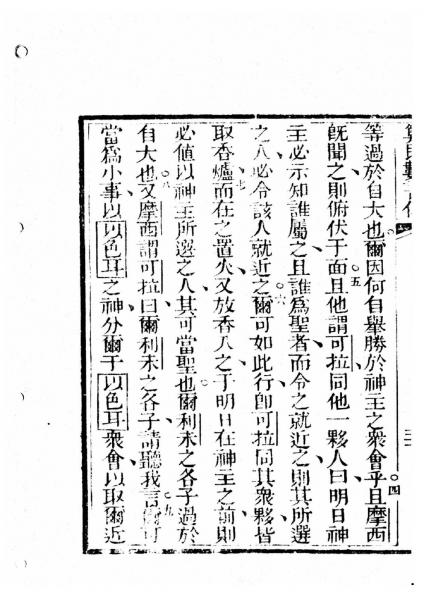 等過於自大也爾因何自舉勝於神主之衆會乎且摩西
旣聞之則俯伏于面且他謂可拉同他一夥人曰明日神
主必示知誰屬之且誰爲聖者而令之就近之則其所選
之人必令該人就近之爾可如此行卽可拉同其衆夥皆
取香爐而在之置火又放香入之于明日在神主之前則
必值以神主所選之人其可當聖也爾利未之各子過於
自大也又摩西謂可拉曰爾利未之各子請聽我言爾可
當爲小事以以色耳之神分爾于以色耳衆會以取爾近